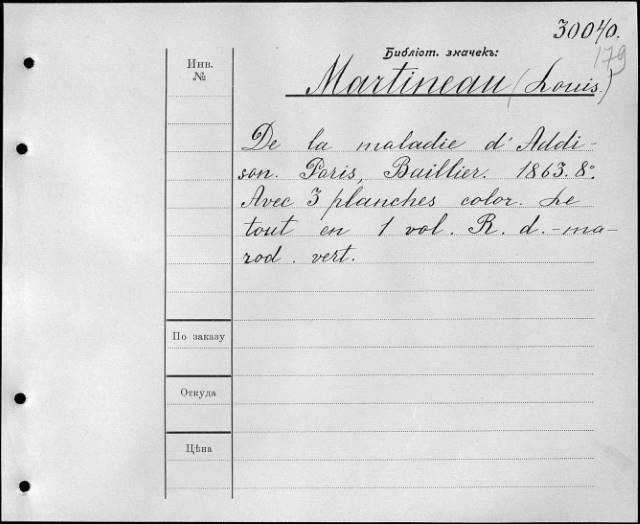 30040.
179
Библіот. значекъ:
Инв.
№
Martineau (Louis.)
De la maladie d'Addi-
son. Paris, Baillier. 1863. 8°.
Avec 3 planches color. Le
tout en 1 vol. R. d.-ma-
rod. vert.
По заказу
Откуда
Цѣна